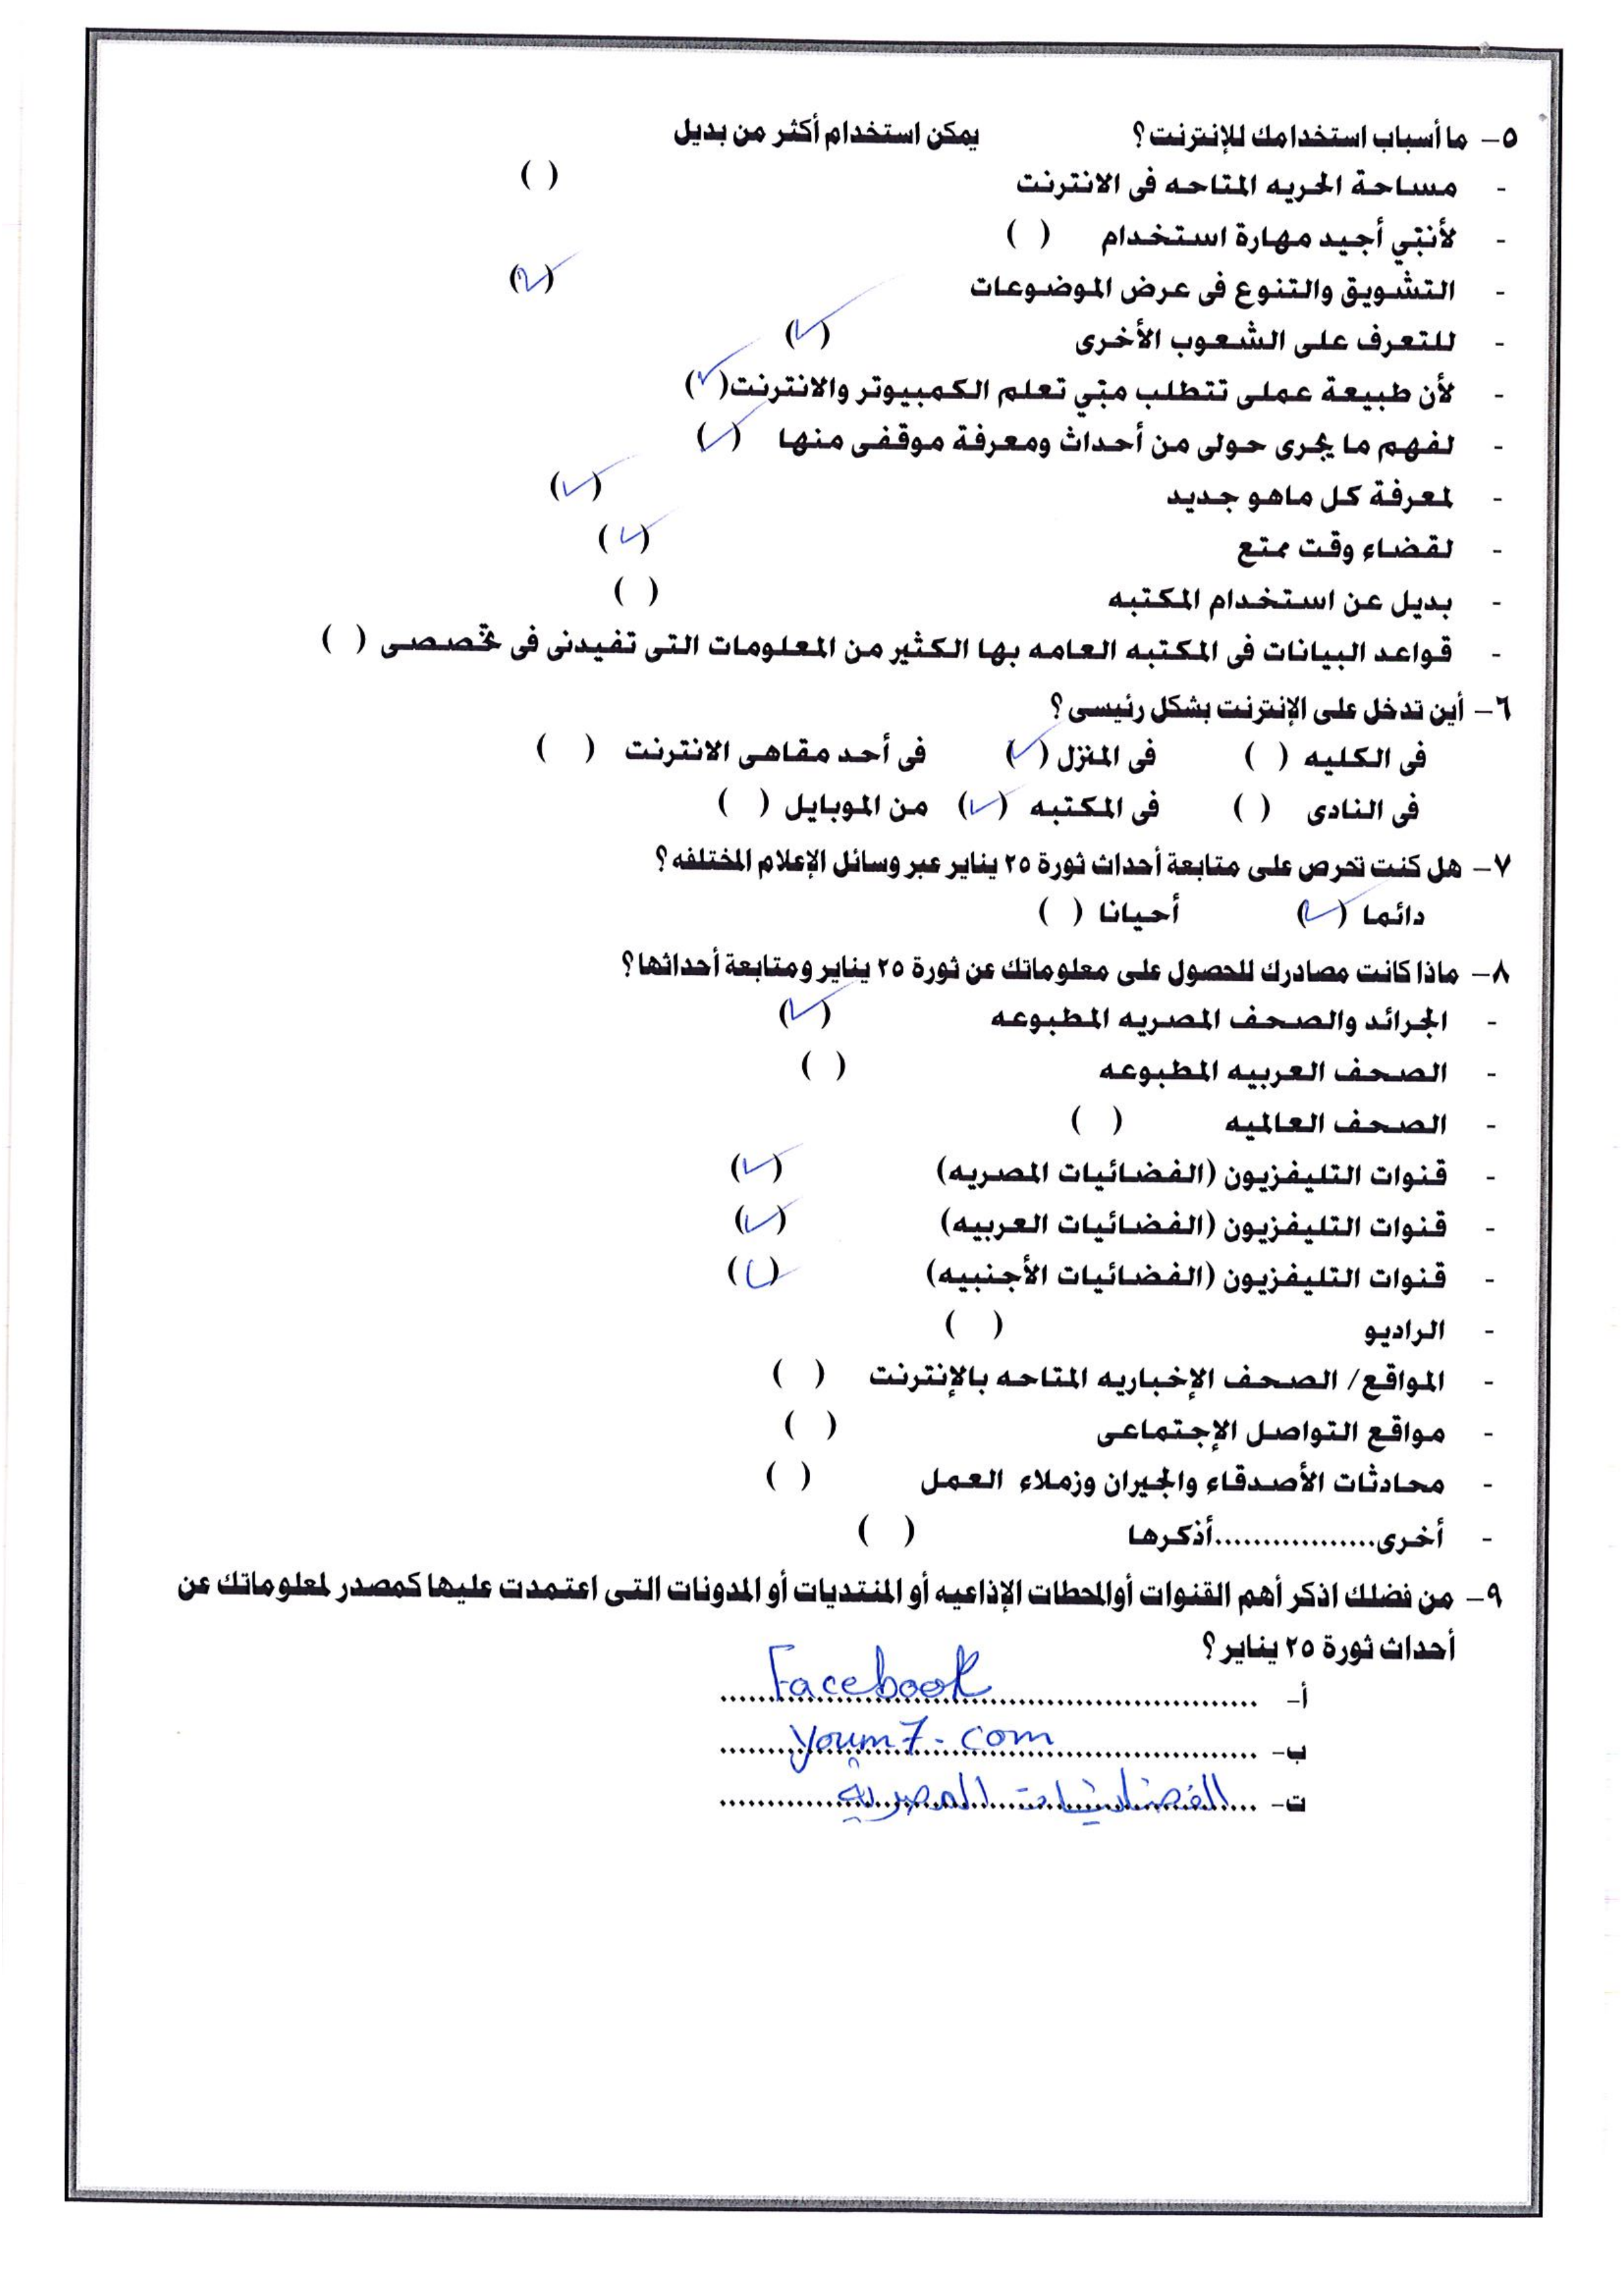 ٥- ما أسباب استخدامك للإنترنت؟ يمكن استخدام أكثر من بديل
- مساحة الحريه المتاحه فى الانترنت ( )
- لأنني أجيد مهارة استخدام ( )
- التشويق والتنوع فى عرض الموضوعات (✓)
- للتعرف على الشعوب الأخرى (✓)
- لأن طبيعة عملى تتطلب مني تعلم الكمبيوتر والانترنت (✓)
- لفهم ما يجرى حولى من أحداث ومعرفة موقفى منها (✓)
- لمعرفة كل ماهو جديد (✓)
- لقضاء وقت ممتع (✓)
- بديل عن استخدام المكتبه ( )
- قواعد البيانات فى المكتبه العامه بها الكثير من المعلومات التى تفيدنى فى تخصصى ( )
٦- أين تدخل على الإنترنت بشكل رئيسى؟
فى الكليه ( ) فى المنزل (✓) فى أحد مقاهى الانترنت ( )
فى النادى ( ) فى المكتبه (✓) من الموبايل ( )
٧- هل كنت تحرص على متابعة أحداث ثورة ٢٥ يناير عبر وسائل الإعلام المختلفه؟
دائما (✓) أحيانا ( )
٨- ماذا كانت مصادرك للحصول على معلوماتك عن ثورة ٢٥ يناير ومتابعة أحداثها؟
- الجرائد والصحف المصريه المطبوعه (✓)
- الصحف العربيه المطبوعه ( )
- الصحف العالميه ( )
- قنوات التليفزيون (الفضائيات المصريه) (✓)
- قنوات التليفزيون (الفضائيات العربيه) (✓)
- قنوات التليفزيون (الفضائيات الأجنبيه) (✓)
- الراديو ( )
- المواقع/ الصحف الإخباريه المتاحه بالإنترنت ( )
- مواقع التواصل الإجتماعى ( )
- محادثات الأصدقاء والجيران وزملاء العمل ( )
- أخرى.................أذكرها ( )
٩- من فضلك اذكر أهم القنوات أوالمحطات الإذاعيه أو المنتديات أو المدونات التى اعتمدت عليها كمصدر لمعلوماتك عن
أحداث ثورة ٢٥ يناير؟
أ- Facebook
ب- youm7.com
ت- الفضائيات المصرية